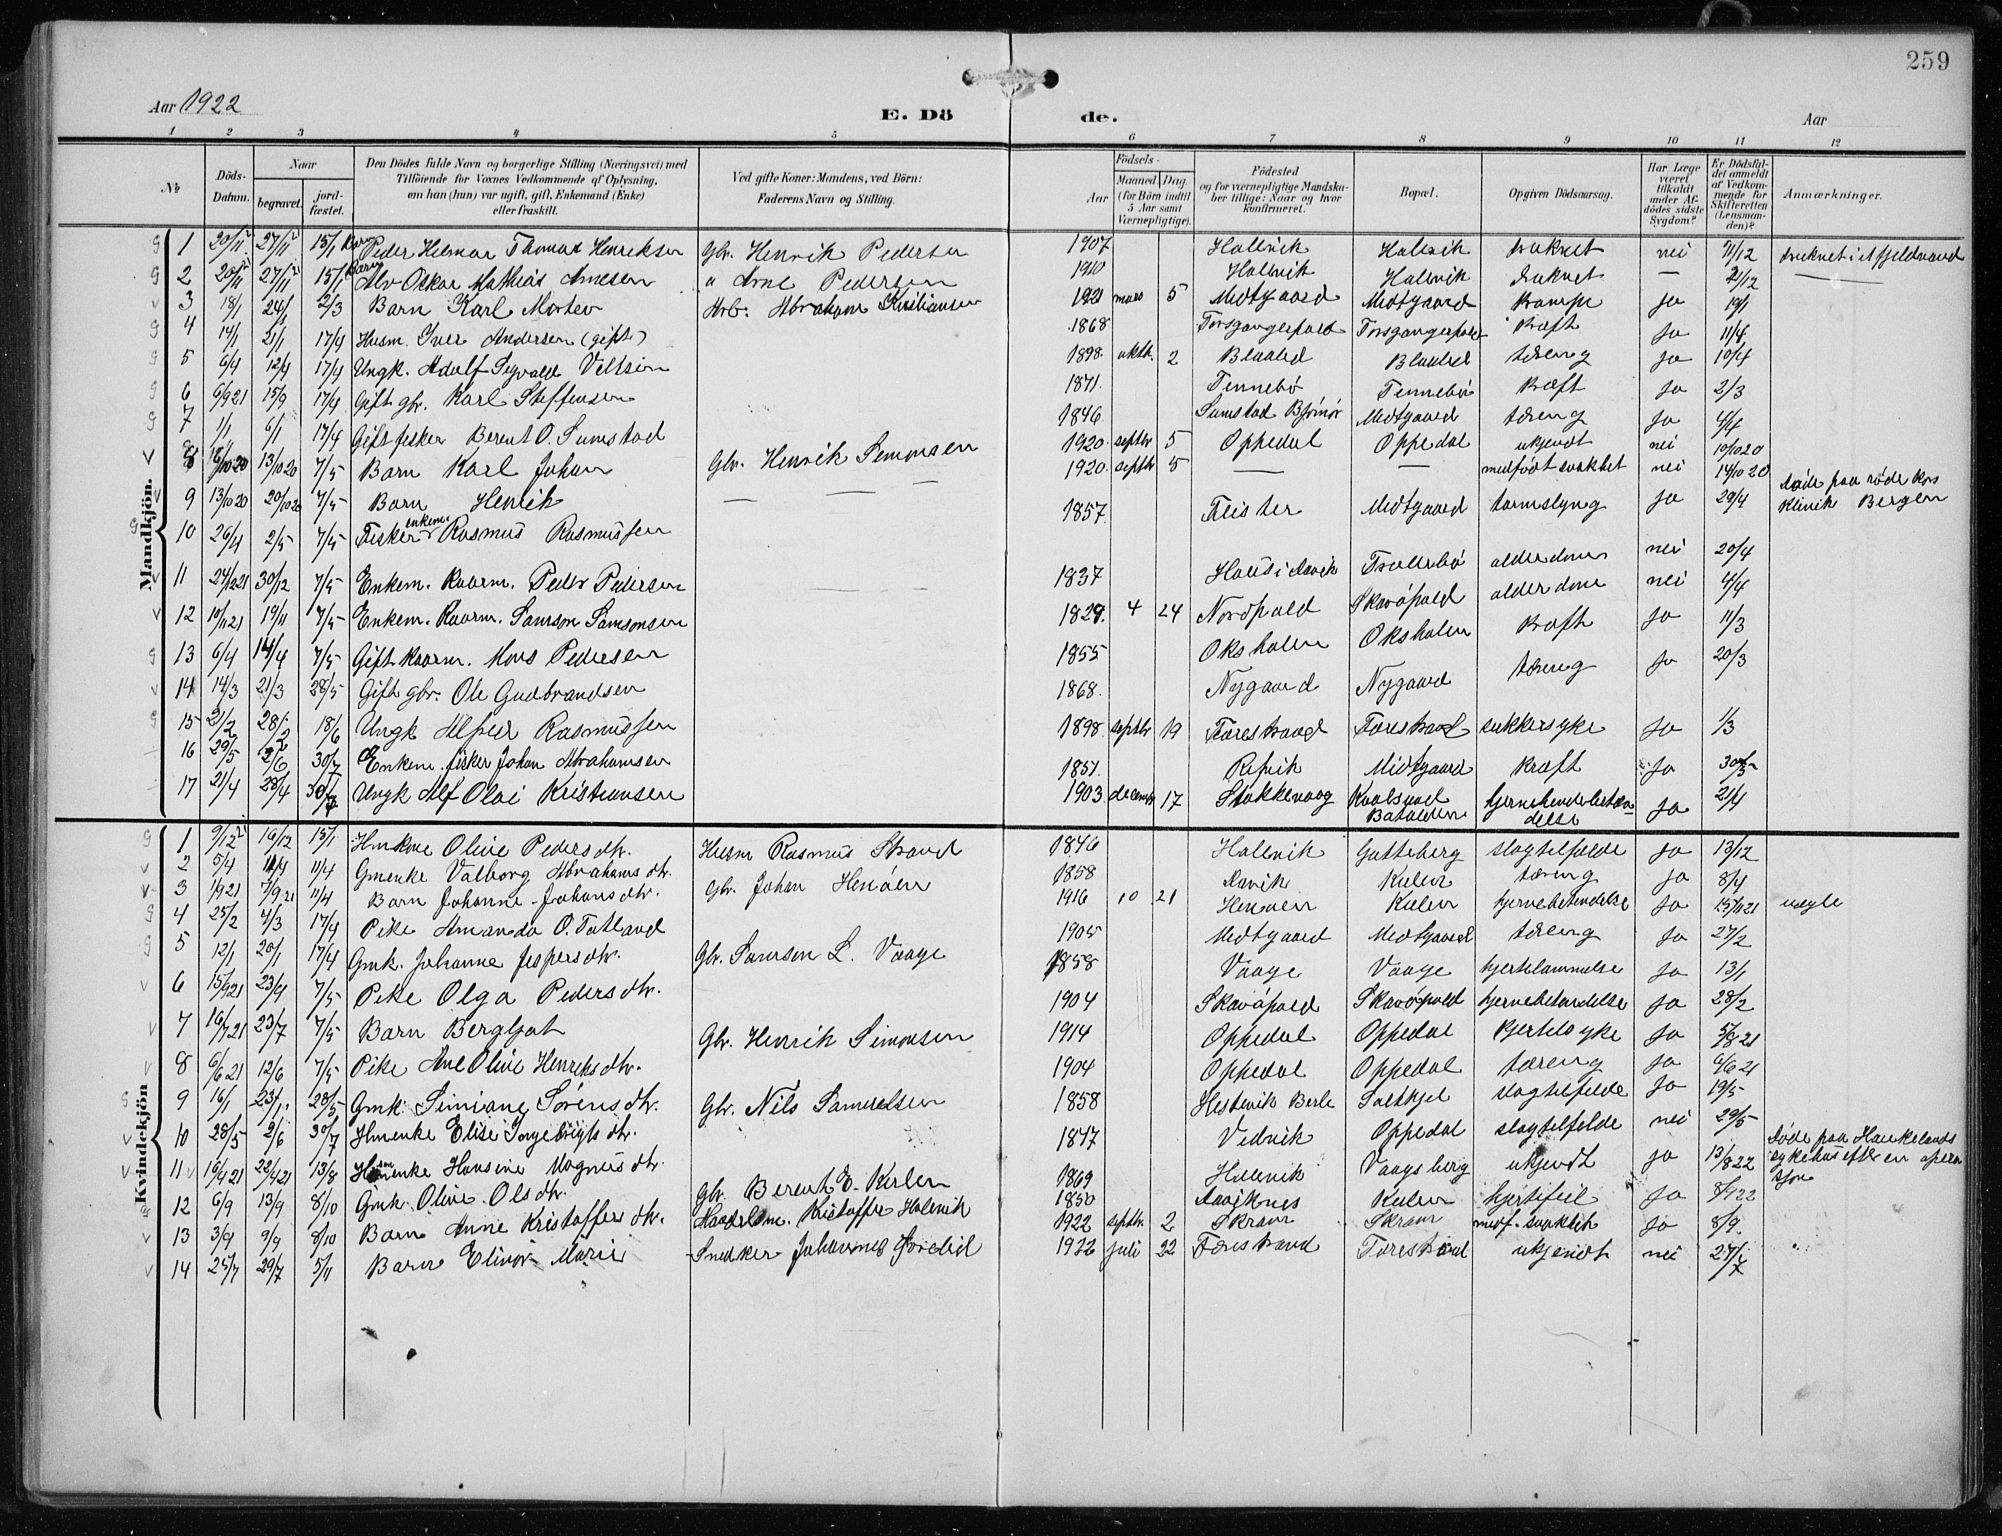 259
Aar 1922
E. Dö de.
Aar
1 2 3 4 5 6 7 8 9 10 11 12
No
Döds-Datum.
Naar
begravet.
jord-fæstet.
Den Dödes fulde Navn og borgerlige Stilling (Næringsvei) med Tilföiende for Voxnes Vedkommende af Oplysning, om han (hun) var ugift, gift, Enkemand (Enke) eller fraskilt.
Ved gifte Koner: Mandens, ved Börn: Faderens Navn og Stilling.
Födsels-
Aar
Maaned. Dag.
(for Börn indtil 5 Aar samt Værnepligtige).
Födested og for værnepligtige Mandskaber tillige: Naar og hvor konfirmeret.
Bopæl.
Opgiven Dödsaarsag.
Har Læge været tilkaldt under Afdödes sidste Sygdom?
Er Dödsfaldet anmeldt af Vedkommende for Skifteretten (Lensmanden)?
Anmærkninger.
Mandkjön.
1 20/11 27/11 15/1 Barn Peder Helmar Thomas Henriksen Gbr. Henrik Pedersen 1907 Hallvik Hallvik druknet nei 11/12 druknet i et fjeldvand
2 20/11 27/11 15/1 Barn Alv Oskar Mathias Arnesen " Arne Pedersen 1910 Hallvik Hallvik druknet — 21/12 —
3 18/1 24/1 2/3 Barn Karl Morten Arb. Abraham Kristiansen 1921 mars 5 Midtgaard Midtgaard krampe ja 19/1
4 14/1 21/1 17/4 Husm. Iver Andersen (gift) 1868 ja 11/4
5 6/4 12/4 17/4 Ungk. Adolf 1898 oktb. 2 Blaalid Blaalid tæring ja 10/4
6 6/9 21 15/9 17/4 Gift gbr. Karl Steffensen 1871 Tennebø Tennebø kræft ja 2/3
7 1/1 6/1 17/4 Gift fisker Berent O. Sumstad 1846 Sumstad Bjørnør Midtgaard tæring ja 4/4
8 10 20 13/10 20 7/5 Barn Karl Johan Gbr. Henrik Simonsen 1920 septbr 5 Oppedal Oppedal ukjendt nei 19/10 20
9 13/10 20 20/10 20 7/5 Barn Henrik — — — 1920 septbr 5 — — medfødt svakhet nei 14/10 20
10 26/4 2/5 7/5 Fisker enkem. Rasmus Rasmussen 1857 Fister Midtgaard tarmslyng ja 29/4 døde paa røde kors klinik Bergen
11 24/12 21 30/12 7/5 Enkem. kaarm. Peder Pedersen 1837 alderdom nei 20/4
12 10/11 21 19/11 7/5 Enkem. Kaarm. Samson Samsonsen 1829 4 24 Nordpold Skavøpold alderdom nei 4/4
13 6/4 14/4 7/5 Gift kaarm. Mons Pedersen 1855 Oksholen Oksholen kræft ja 11/3
14 14/3 21/3 28/5 Gift gbr. Ole Gudbrandsen 1868 Nygaard Nygaard tæring ja 20/3
15 21/2 28/2 18/6 Ungk Alfred Rasmussen 1898 septbr 19 Førestrand Førestrand sukkersyke ja 1/3
16 29/5 2/6 30/7 Enkem. fisker Johan Abrahamsen 1851 Refvik Midtgaard kræft ja 30/5
17 21/4 28/4 30/7 Ungk Alf Olai Kristiansen 1903 decembr 17 Stokkevaag Batalden ja 21/4
Kvindekjön
1 9/12 19/12 15/1 Hmkone Olive Pedersdtr. Husm Rasmus Strand 1846 Hallvik Gulleberg slagtilfælde ja 13/12
2 5/4 11/4 Gmenke Valborg Abrahamsdtr. 1858 Aavik Kulen tæring ja 8/4
3 1/9 21 7/9 21 11/4 Barn Johanne Johansdtr. Gbr. Johan Henøen 1916 10 21 Henøen Kulen hjernebetændelse ja 21 uægte
4 25/2 4/3 17/4 Pike Amanda O. Totland 1905 Midtgaard Midtgaard tæring ja 27/2
5 12/1 20/1 17/4 Gmk. Johanne Jespersdtr. Gbr. Samson L. Vaage 1858 Vaage Vaage hjertelammelse ja 13/1
6 15/9 21 23/9 7/5 Pike Olga Pedersdtr. 1904 Skavøpold Skavøpold hjernebetændelse ja 28/2
7 16/7 21 23/7 7/5 Barn Bergljot Gbr. Henrik Simonsen 1914 Oppedal Oppedal kjertelsyke ja 5/8 21
8 6/6 21 12/6 7/5 Pike Ane Olive Henriksdtr. 1904 Oppedal Oppedal tæring ja 6/6 21
9 16/1 23/1 28/5 Gmk. Simiane Sørensdtr. Gbr. Nils Samuelsen 1858 Hestevik Berle Saltkjel slagtilfelde ja 19/5
10 28/5 2/6 30/7 Hmenke Elise Ingebrigtsdtr. 1847 Vedvik Oppedal slagtilfelde nei 29/5
11 16/4 21 22/4 21 13/8 Hmenke Hansine Magnusdtr. 1869 Hallevik Vaagsberg ukjendt ja 13/8 22 døde paa Haukelands sykehus efter en operasjon
12 6/9 13/9 8/10 Gmk. Olive Olsdtr. Gbr. Berent E. Kulen 1850 Aaviknes Kulen hjertefeil ja 8/9 22
13 3/9 9/9 8/10 Barn Anne Kristoffersdtr. Kristoffer Halevik 1922 septbr. 2 Skram Skram medf. svakhet ja 8/9
14 25/7 29/7 5/11 Barn Elinor Marie Snedker Johannes Førelid 1922 juli 22 Førestrand Førestrand ukjendt nei 27/7